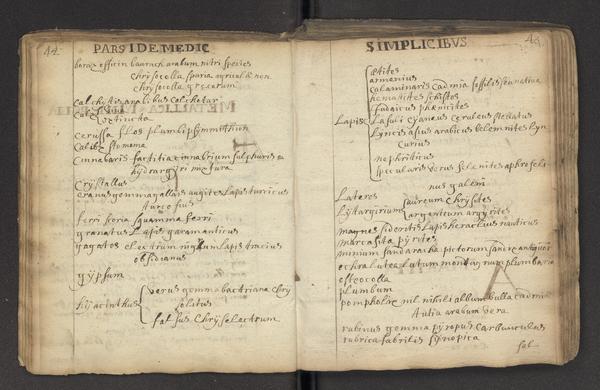 44.
PARS I DE MEDIC
borax officin baurach arabum nitri species
chrysocolla sparia agricolæ non
chrysocolla græcorum
calchitis arabibus colchotar
calx extincta
cerussa flos plumbi psymmithun
calibs stomoma
cinnabaris factitia cinnabrium sulphuris &
hydrargiri mixtura
crystallus
eranus gemma gallais augites Lapis turcicus
turcosius
ferri scoria squamma ferri
granatus Lapis garamanticus
gagatos electrum nigrum Lapis tracius
obsidianus
gypsum
hyacinthus
verus gemma bactriana chry
solatus
falsus chryselectrum
SIMPLICIBVS
44.
Lapis
ætites
armenius
calaminaris cadmia fossilis seu nativa
hæmatites schistos
Judaicus phænicites
Lasuli cyaneus ceruleus stellatus
Lyncis asius arabicus belemnites lyn
curius
nephriticus
specularis verus selenites aphroseli
nus galeni
Lateres
Lythargirium
aureum chrysites
argentum argyrites
magnes sideritis Lapis heraclius nauticus
marcasita pyrites
minium sandaracha pictorum sandix antiquor
ochra lutea lutum montanum plumbaria
osteocolla
plumbum
pompholix nil nihili album bulla cadmiæ
tutia arabum vera
rubinus gemma pyropus carbunculus
rubrica fabrilis synopica
sal